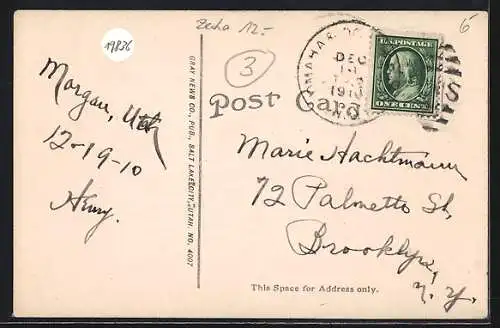 19836
Zecha 12.-
6
3
Post Card
OMAHA &
DEC
1910
U.S. POSTAGE
ONE CENT
S
Morgan, Utah
12-19-10
Henry.
GRAY NEWS CO., PUB., SALT LAKE CITY, UTAH. NO. 4007
Marie Hachtmann
72 Palmetto St,
Brooklyn,
N. Y.
This Space for Address only.